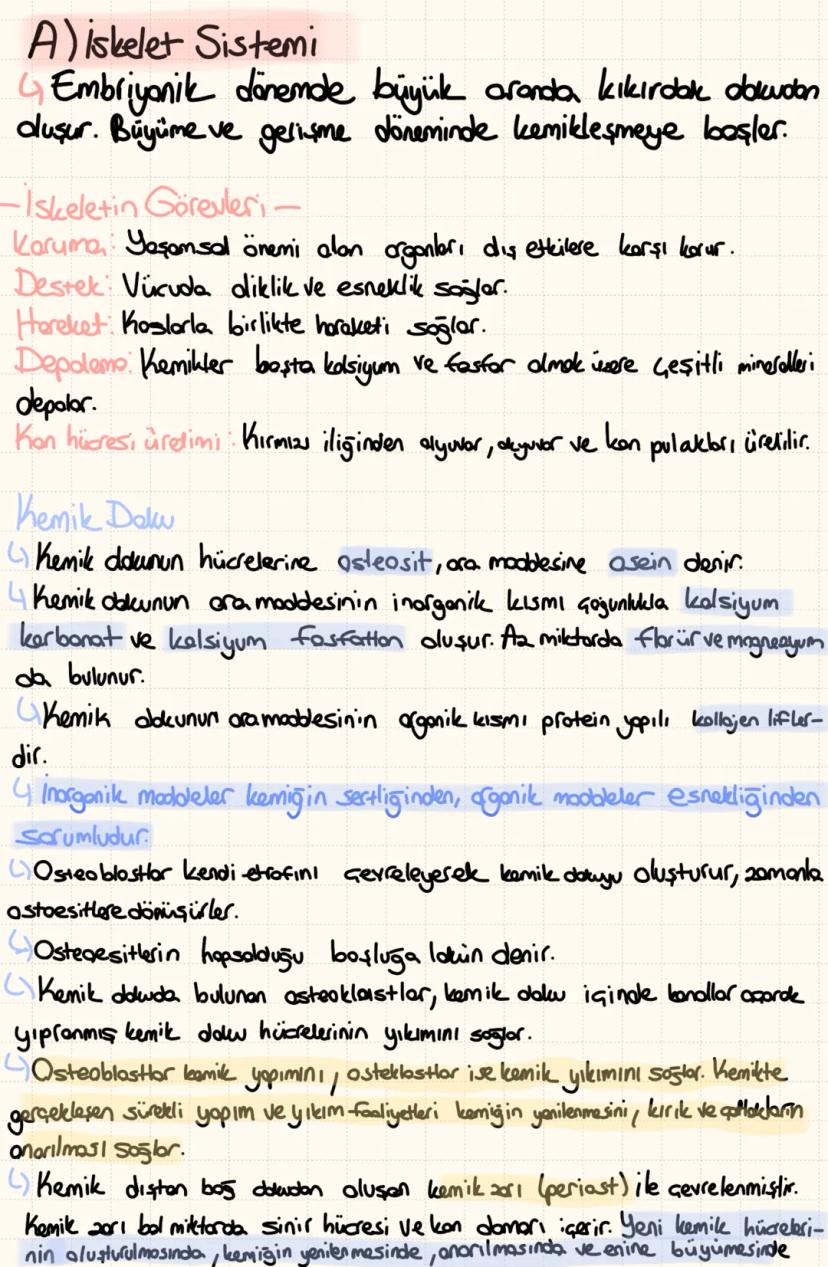 A) İskelet Sistemi
↳ Embriyonik dönemde büyük oranda kıkırdak dokudan
oluşur. Büyüme ve gerişme döneminde kemikleşmeye başlar.
-İskeletin Görevleri-
Koruma: Yaşamsal önemi olan organları dış etkilere karşı korur.
Destek: Vücuda diklik ve esneklik sağlar.
Hareket: Kaslarla birlikte haraketi sağlar.
Depolama: Kemikler başta kalsiyum ve fosfor olmak üzere çeşitli mineralleri
depolar.
Kan hücresi üretimi: Kırmızı iliğinden alyuvar, akyuvar ve kan pulakları üretilir.
Kemik Doku
↳ Kemik dokunun hücrelerine osteosit, ara maddesine osein denir.
↳ Kemik dokunun ara maddesinin inorganik kısmı çoğunlukla kalsiyum
karbonat ve kalsiyum fosfattan oluşur. Az miktarda florür ve magnezyum
da bulunur.
↳ Kemik dokunun ara maddesinin organik kısmı protein yapılı kollajen lifler-
dir.
↳ İnorganik maddeler kemiğin sertliğinden, organik maddeler esnekliğinden
sorumludur.
↳ Osteoblastlar kendi etrafını çevreleyerek kemik dokuyu oluşturur, zamanla
ostoesitlere dönüşürler.
↳ Osteoesitlerin hapsolduğu boşluğa lakün denir.
↳ Kemik dokuda bulunan osteoklastlar, kemik doku içinde kanallar açarak
yıpranmış kemik doku hücrelerinin yıkımını sağlar.
↳ Osteoblastlar kemik yapımını, osteklastlar ise kemik yıkımını sağlar. Kemikte
gerçekleşen sürekli yapım ve yıkım faaliyetleri kemiğin yenilenmesini, kırık ve çatlakların
onarılması sağlar.
↳ Kemik dıştan bağ dokudan oluşan kemik zarı (periost) ile çevrelenmiştir.
Kemik zarı bol miktarda sinir hücresi ve kan damarı içerir. Yeni kemik hücreleri-
nin oluşturulmasında, kemiğin yenilenmesinde, onarılmasında ve enine büyümesinde